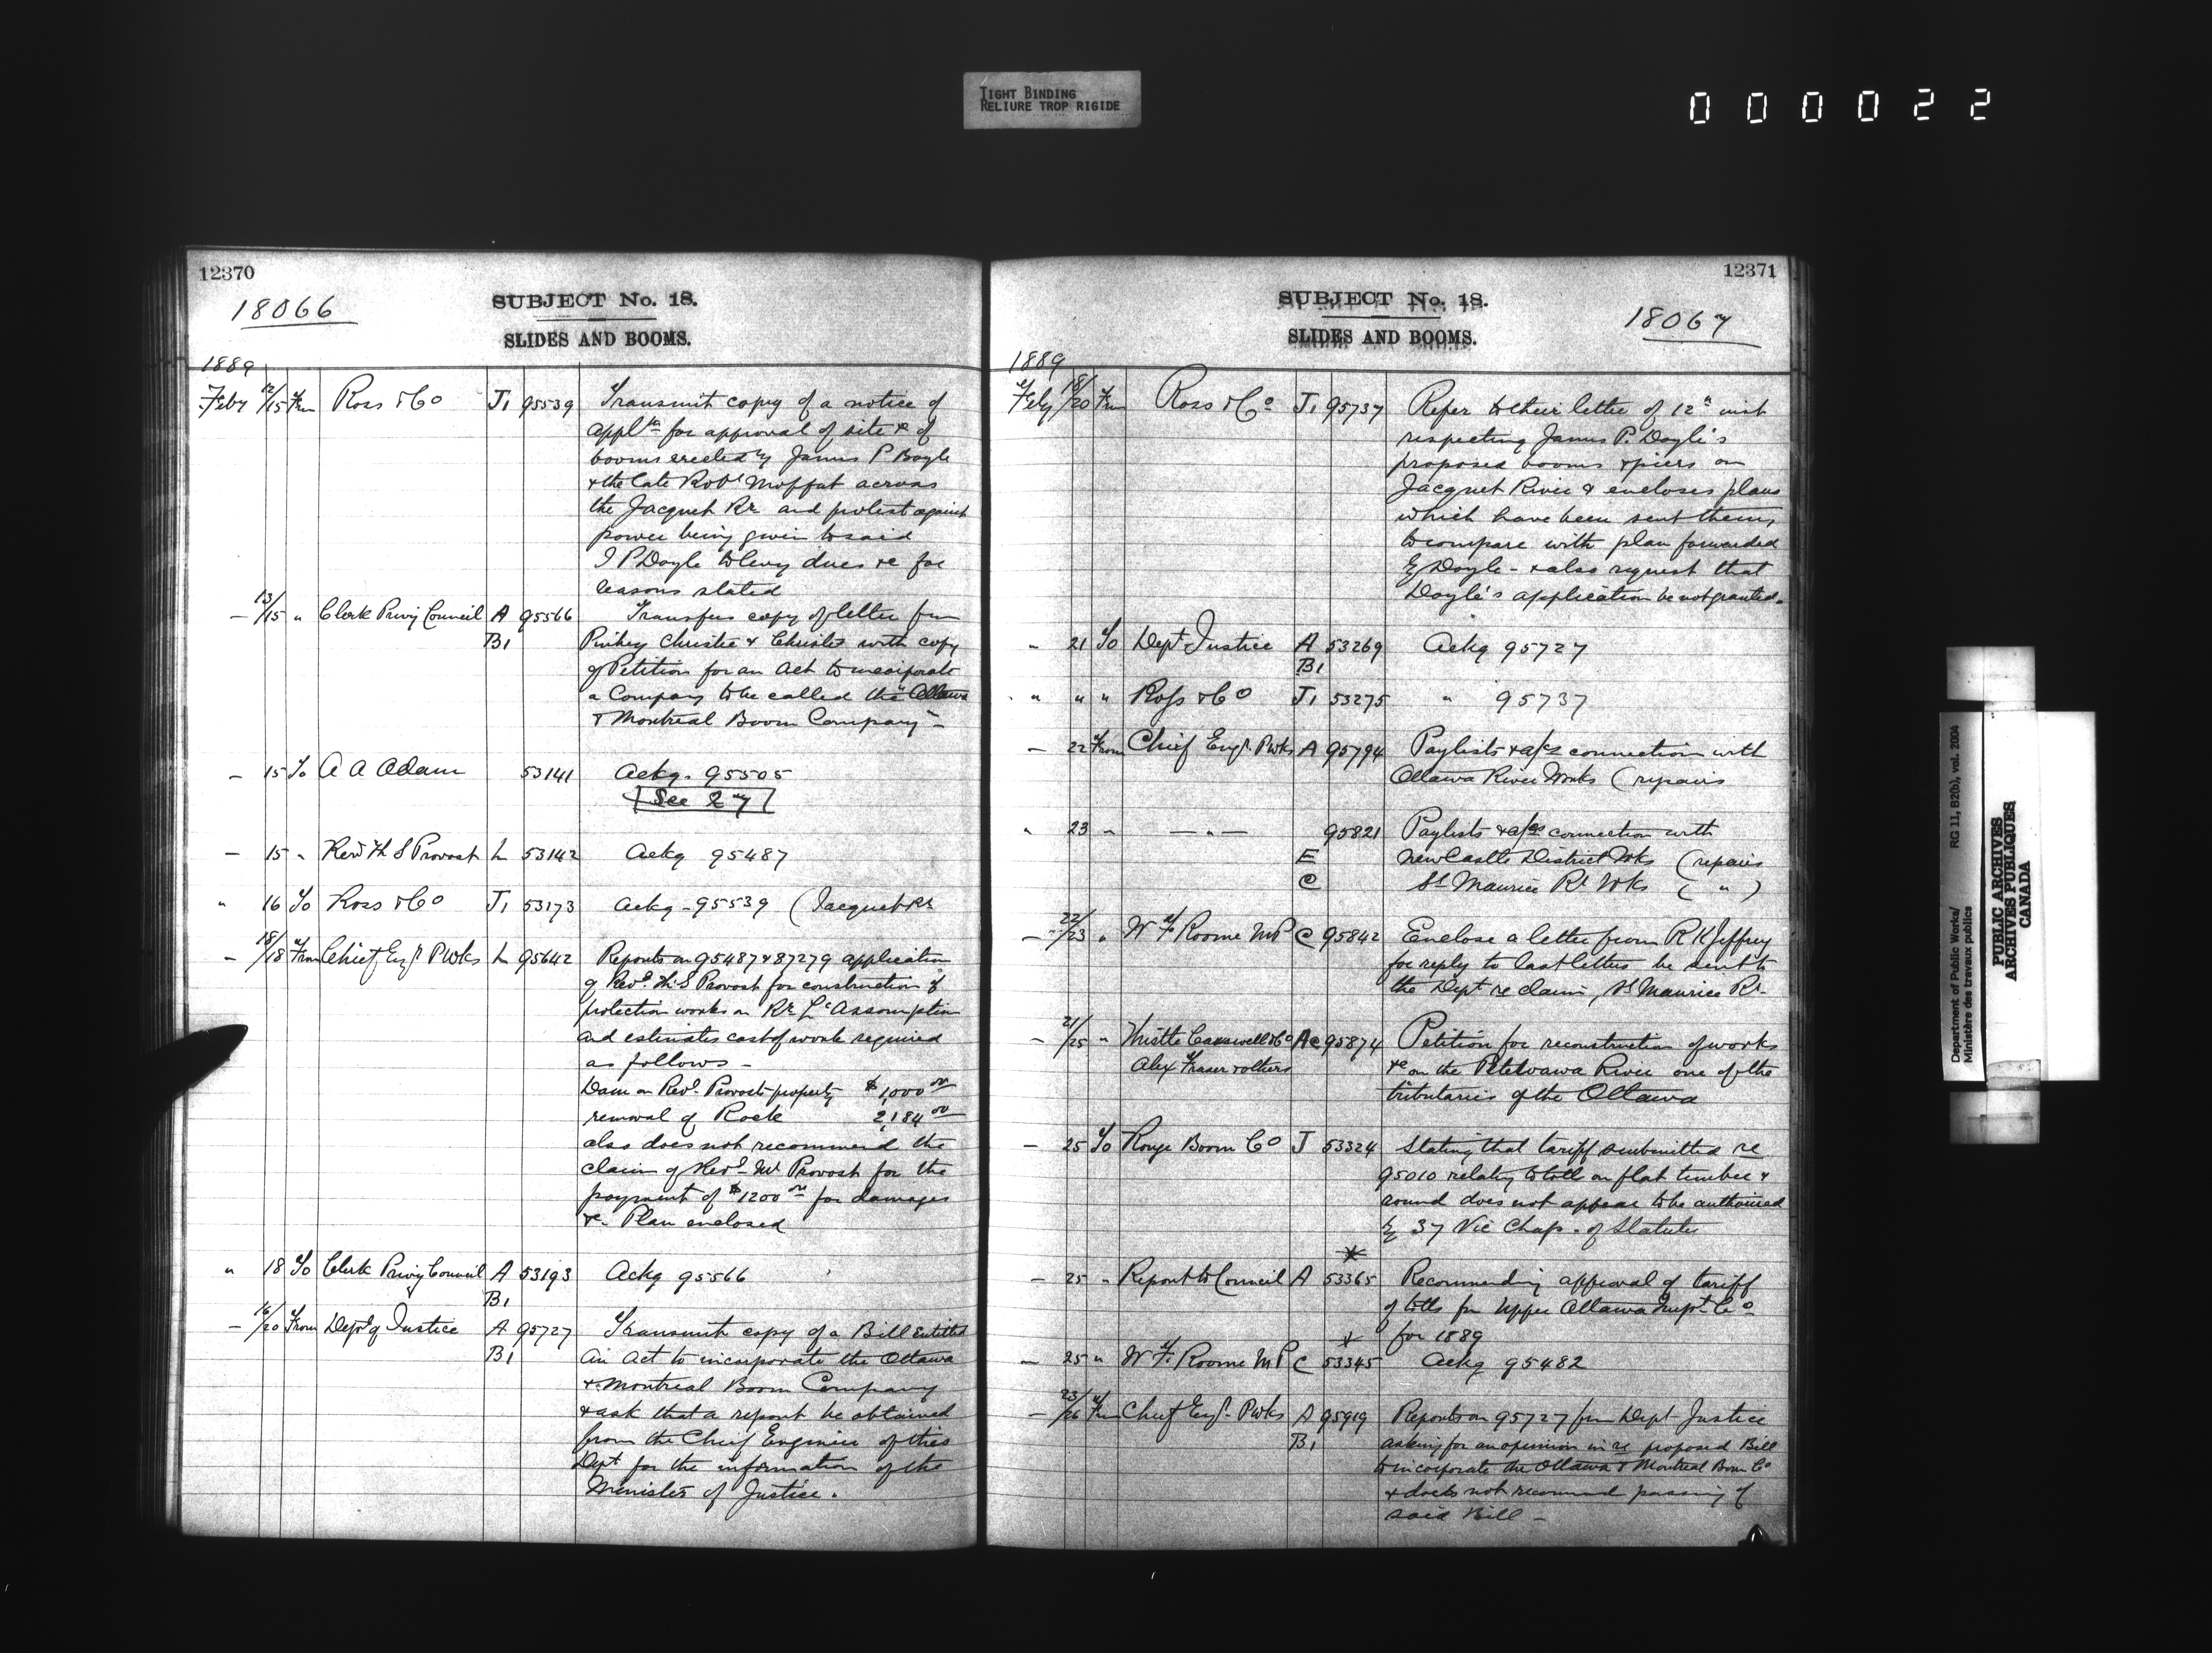 TIGHT BINDING
RELIURE TROP RIGIDE
000022
12370
18066
SUBJECT No. 18.
SLIDES AND BOOMS.
1889
Feby 12/15 From Ross & Co J1 95539 Transmit copy of a notice of
appltn for approval of site & of
booms erected by James P Boyle
& the late Robt Moffat across
the Jacquet Rr and protest against
power being given to said
J P Doyle to levy dues &c for
reasons stated
— 13/15 " Clerk Privy Council A 95566 Transfers copy of letter from
B1 Pinhey Christie & Christie with copy
of Petition for an Act to incorporate
a Company to be called the "Ottawa
& Montreal Boom Company" —
— 15 To A A Adam 53141 Ackg. 95505
See 27
— 15 " Revd Th S Provost L 53142 Ackg 95487
" 16 To Ross & Co J1 53173 Ackg - 95539 (Jacquet Rr
— 18/18 From Chief Engr P Wks L 95642 Reports on 95487 & 87279 application
of Revd Th. S Provost for construction of
protection works on Rr L'Assomption
and estimates cost of works required
as follows —
Dam on Revd Provosts property $1,000 00
removal of Rock 2,184 00
also does not recommend the
claim of Revd Mr Provost for the
payment of $1200 00 for damages
&c. Plan enclosed
" 18 To Clerk Privy Council A 53193 Ackg 95566
B1
— 16/20 From Dept of Justice A 95727 Transmit copy of a Bill entitled
B1 An Act to incorporate the Ottawa
& Montreal Boom Company
& ask that a report be obtained
from the Chief Engineer of this
Dept for the information of the
Minister of Justice.
12371
SUBJECT No. 18.
18067
SLIDES AND BOOMS.
1889
Feby 18/20 From Ross & Co J1 95737 Refer to their letter of 12th inst
respecting James P. Doyle's
proposed booms & piers on
Jacquet River & encloses plans
which have been sent them,
to compare with plan forwarded
by Doyle - & also request that
Doyle's application be not granted.
" 21 To Dept Justice A 53269 Ackg 95727
B1
" " " Ross & Co J1 53275 " 95737
— 22 From Chief Engr. P Wks A 95794 Paylists & a/cs connection with
Ottawa River Works (repairs
" 23 " — " — 95821 Paylists & a/cs connection with
E New Castle District Wks (repairs
C St Maurice Rr Wks ( " )
— 22/23 " W F Roome MP C 95842 Enclose a letter from R K Jeffrey
for reply to last letters he sent to
the Dept re claim, St Maurice Rr.
— 21/25 " Thistle Carswell & Co Ac 95874 Petition for reconstruction of works
Alex Fraser & others &c on the Petewawa River one of the
tributaries of the Ottawa
— 25 To Rouge Boom Co J 53324 Stating that tariff submitted re
95010 relating to toll on flat timber &
round does not appear to be authorized
by 37 Vic Chap. of Statutes
— 25 " Report to Council A 53365 Recommending approval of tariff
of tolls for Upper Ottawa Impt Co
for 1889
— 25 " W F. Roome M P C 53345 Ackg 95482
— 23/26 From Chief Engr. P Wks A 95919 Reports on 95727 from Dept Justice
B1 asking for an opinion in re proposed Bill
to incorporate the Ottawa & Montreal Boom Co
& does not recommend passing of
said Bill —
Department of Public Works/
Ministère des travaux publics
RG 11, B2(b), vol. 2004
PUBLIC ARCHIVES
ARCHIVES PUBLIQUES
CANADA